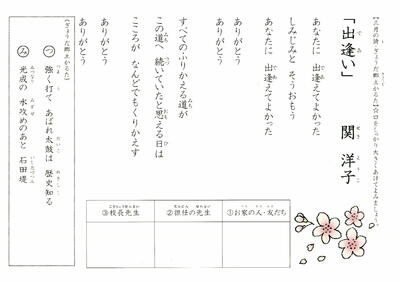 【三月の詩、ぎょうだ郷土かるた】☆口をしっかり大きくあけてよみましょう。
「出逢い」 関 洋子
あなたに 出逢えてよかった
しみじみと そうおもう
あなたに 出逢えてよかった
ありがとう
ありがとう
すべてのふりかえる道が
この道へ 続いていたと思える日は
こころが なんどでもくりかえす
ありがとう
ありがとう
【ぎょうだ郷土かるた】
つ 強く打て あばれ太鼓は 歴史知る
み 光成の 水攻めのあと 石田堤
①お家の人・友だち
②担任の先生
③校長先生